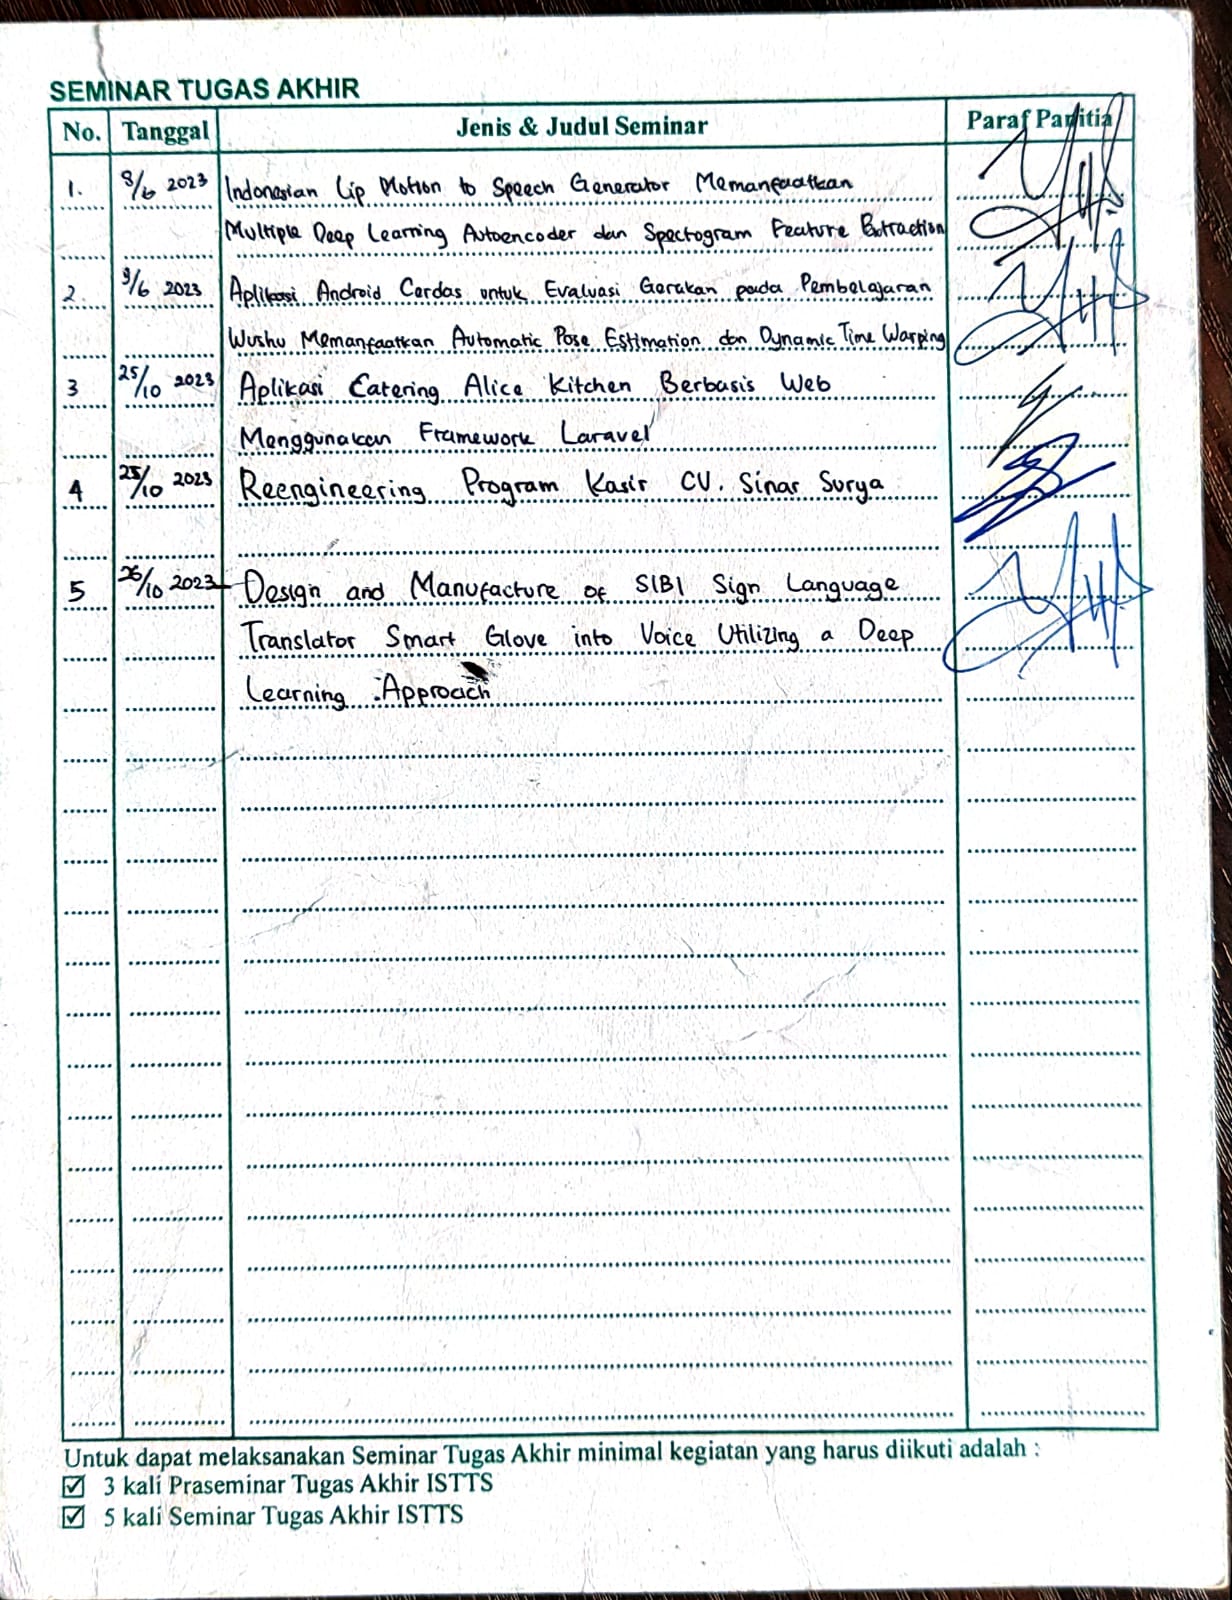 SEMINAR TUGAS AKHIR
No. Tanggal Jenis & Judul Seminar Paraf Panitia
1. 8/6 2023 Indonesian Lip Motion to Speech Generator Memanfaatkan
Multiple Deep Learning Autoencoder dan Spectogram Feature Extraction
2. 9/6 2023 Aplikasi Android Cerdas untuk Evaluasi Gerakan pada Pembelajaran
Wushu Memanfaatkan Automatic Pose Estimation dan Dynamic Time Warping
3 25/10 2023 Aplikasi Catering Alice Kitchen Berbasis Web
Menggunakan Framework Laravel
4 25/10 2023 Reengineering Program Kasir CV. Sinar Surya
5 26/10 2023 Design and Manufacture of SIBI Sign Language
Translator Smart Glove into Voice Utilizing a Deep
Learning Approach
Untuk dapat melaksanakan Seminar Tugas Akhir minimal kegiatan yang harus diikuti adalah :
☑ 3 kali Praseminar Tugas Akhir ISTTS
☑ 5 kali Seminar Tugas Akhir ISTTS